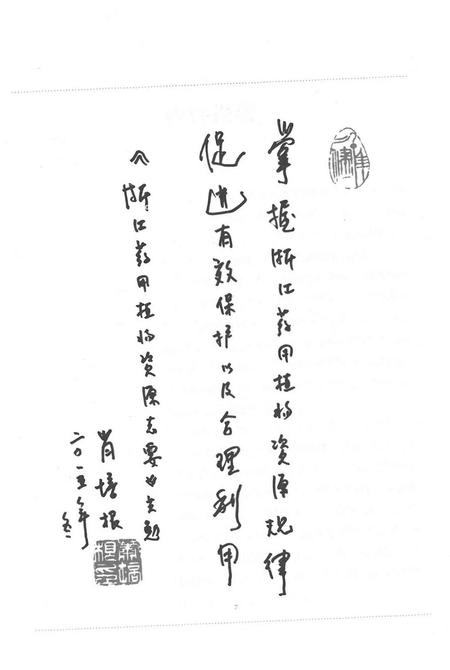 掌握浙江药用植物资源规律
促进有效保护以及合理利用
《浙江药用植物资源志要
肖培根
二〇一五年冬
7